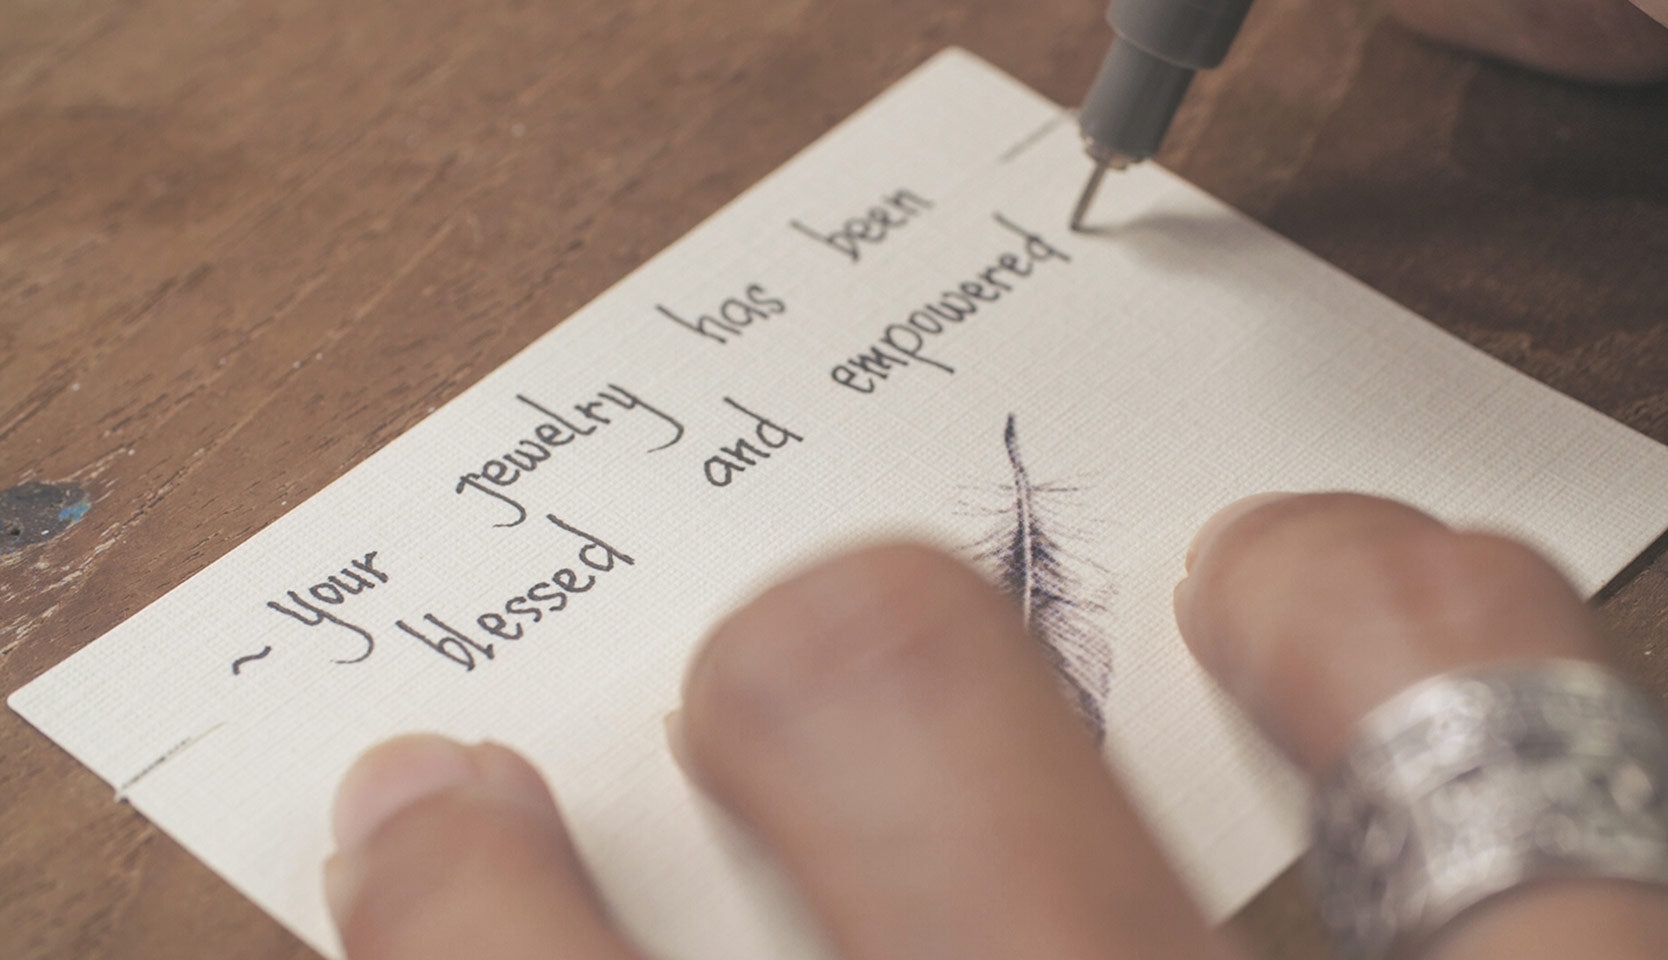 ~ your jewelry has been
blessed and empowered